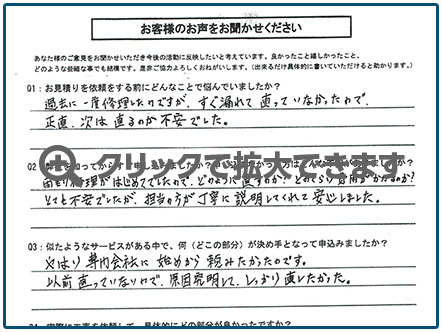 お客様のお声をお聞かせください
あなた様のご意見をお聞かせいただき今後の活動に反映したいと考えています。良かったこと嬉しかったこと、
どのような些細な事でも結構です。是非ご協力よろしくおねがいします。(出来るだけ具体的に書いていただけると助かります。)
Q1：お見積りを依頼をする前にどんなことで悩んでいましたか?
過去に一度修理したのですが、すぐ漏れて直っていなかたので、
正直、次は直るのか不安でした。
クリックで拡大できます
雨もり修理がはじめてでしたので、どのように直すのか?どのくらい費用がかかるのか?
とても不安でしたが、担当の方が丁寧に説明してくれて安心しました。
Q3：似たようなサービスがある中で、何（どこの部分）が決め手となって申込みましたか?
やはり専門会社に始めから頼みたかったのです。
以前直っていないので、原因究明して、しっかり直したかった。